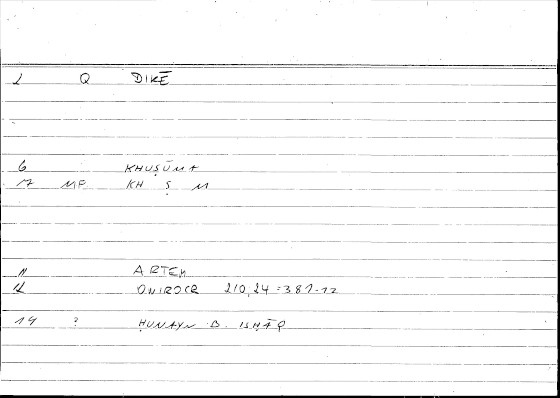 1 Q DIKĒ
6 KHUṢŪMA
17 MF KH Ṣ M
11 ARTEM
12 ONIROCR 210,24 = 381-12
14 ? ḤUNAYN B. ISḤĀQ